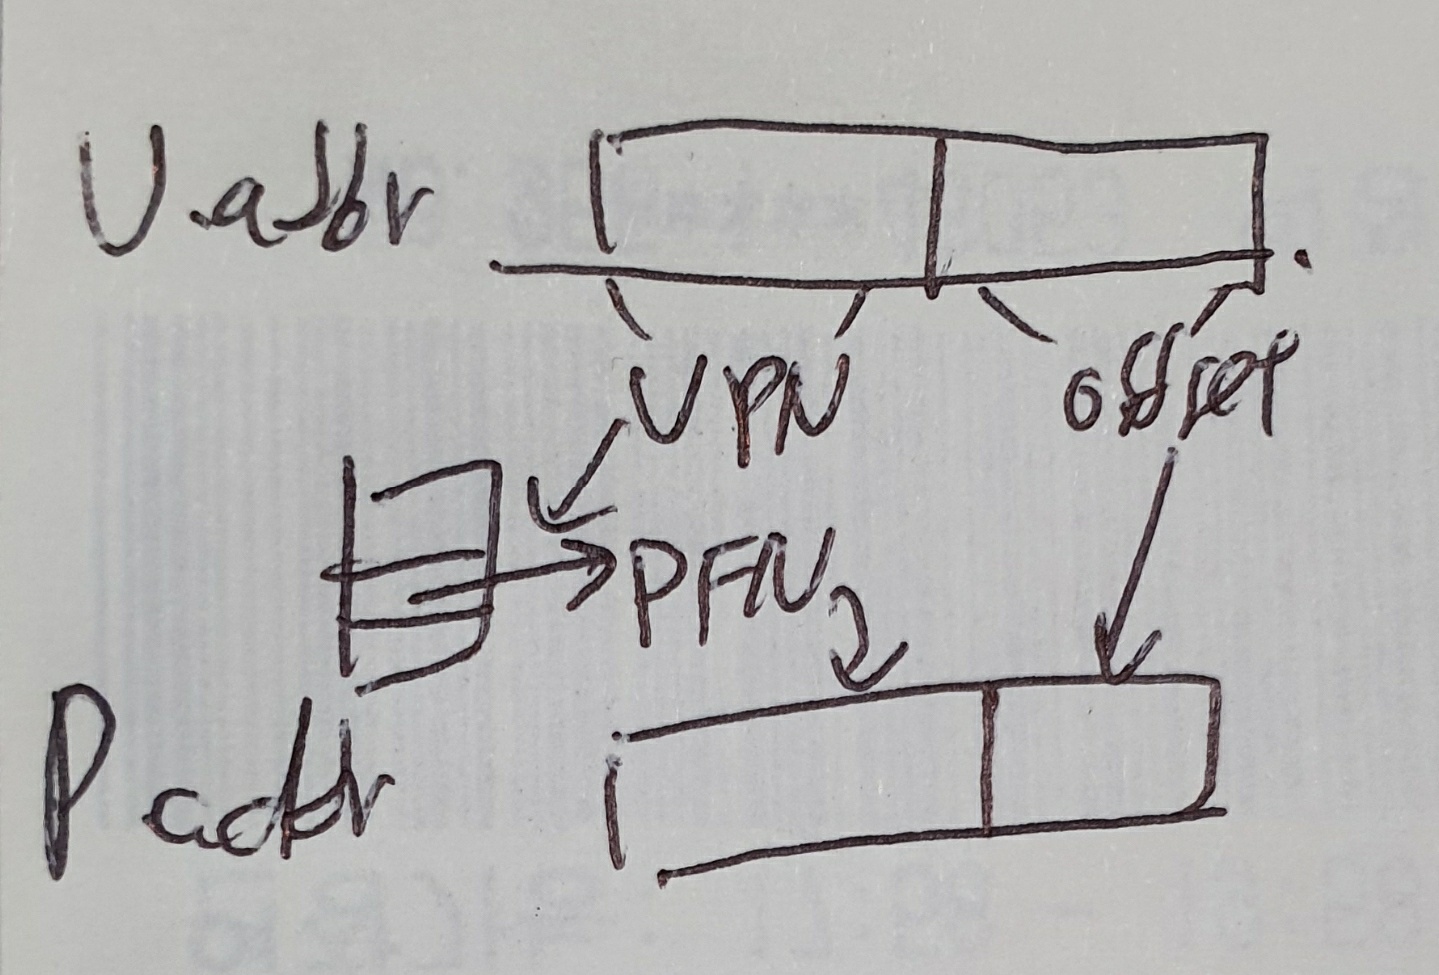 V.addr
VPN offset
PFN
P addr